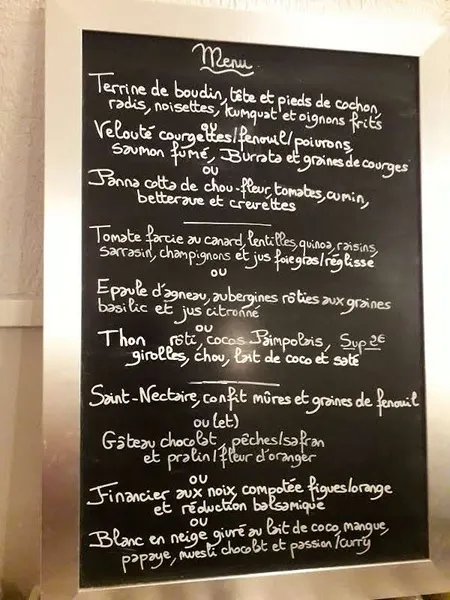 Menu
Terrine de boudin, tête et pieds de cochon,
radis, noisettes, kumquat et oignons frits
ou
Velouté courgettes/fenouil/poivrons,
saumon fumé, Burrata et graines de courges
ou
Panna cotta de chou-fleur, tomates, cumin,
betterave et crevettes
Tomate farcie au canard, lentilles, quinoa, raisins,
sarrasin, champignons et jus foie gras/réglisse
ou
Epaule d'agneau, aubergines rôties aux graines
basilic et jus citronné
ou
Thon rôti, cocos Paimpolais, Sup 2€
girolles, chou, lait de coco et saté
Saint-Nectaire, confit mûres et graines de fenouil
ou (et)
Gâteau chocolat, pêches/safran
et pralin/fleur d'oranger
ou
Financier aux noix, compotée figues/orange
et réduction balsamique
ou
Blanc en neige givré au lait de coco, mangue,
papaye, muesli chocolat et passion/curry